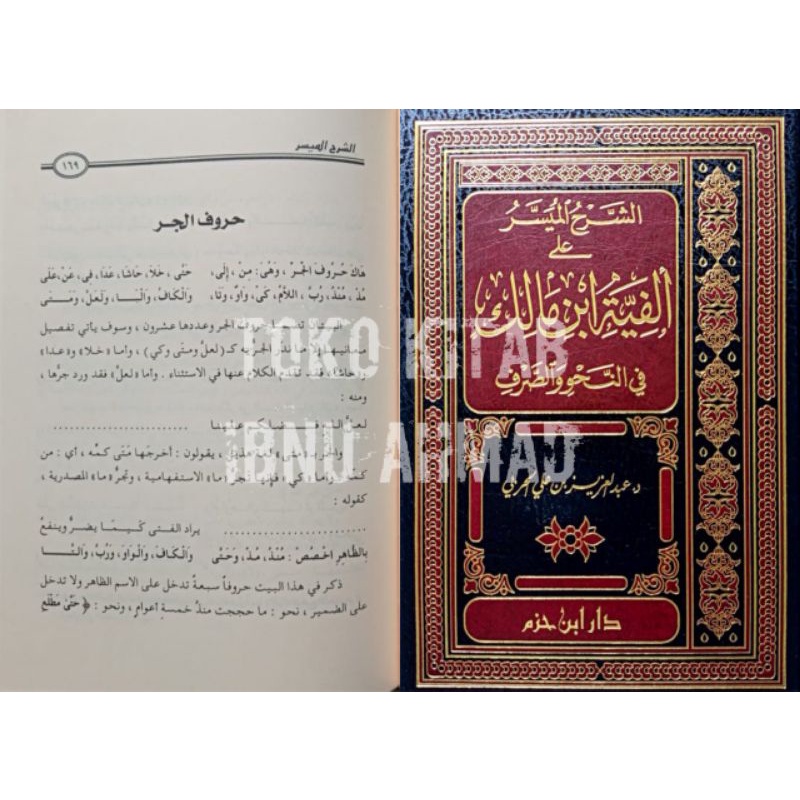 الشرح الميسر
١٦٩
حروف الجر
هَاكَ حُرُوفَ الْجَرِّ، وَهْيَ: مِنْ، إِلَى، حَتَّى، خَلَا، حَاشَا، عَدَا، فِي، عَنْ، عَلَى
مُذْ، مُنْذُ، رُبَّ، اللَّامُ، كَيْ، وَاوٌ، وَتَا، وَالْكَافُ، وَالْبَا، وَلَعَلَّ، وَمَتَى
حروف الجر وعددها عشرون، وسوف يأتي تفصيل
معانيها، إلا ما ندر الجر به كـ(لعل ومتى وكي)، وأما «خلا» و«عدا»
و«حاشا» فقد تقدم الكلام عنها في الاستثناء. وأما «لعل» فقد ورد جرُّها،
ومنه:
لعلَّ الله فضلكم علينا
هذيل، يقولون: أخرجَها مَتَى كمِّه، أي: من
كمه، وأما «كي» فإنها تجر «ما» الاستفهامية، وتجرُّ «ما» المصدرية،
كقوله:
يراد الفتى كَيمَا يضرُّ وينفعُ
بِالظَّاهِرِ اخْصُصْ: مُنْذُ، مُذْ، وَحَتَّى وَالْكَافَ، وَالْوَاوَ، وَرُبَّ، وَالتَّا
ذكر في هذا البيت حروفاً سبعة تدخل على الاسم الظاهر ولا تدخل
على الضمير، نحو: ما حججت منذ خمسةِ أعوام، ونحو: ﴿حَتَّى مَطْلَعِ
الشَّرْحُ المُيَسَّرُ
عَلى
ألفيَّة ابن مالك
في النَّحْو والصَّرْف
د. عبد العزيز بن علي الحربي
دار ابن حزم
TOKO KITAB
IBNU AHMAD